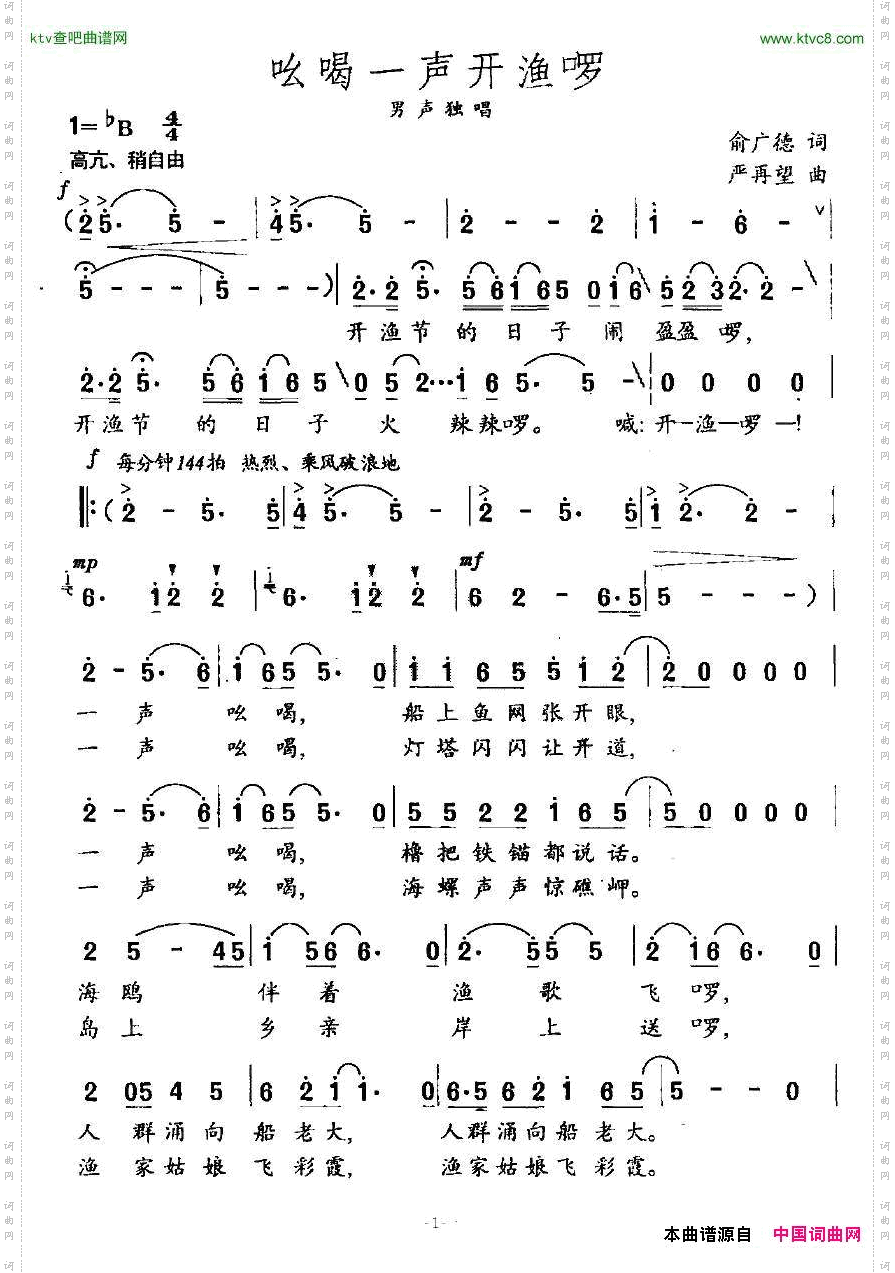 ktv查吧曲谱网
www.ktvc8.com
吆喝一声开渔啰
男声独唱
1=♭B 4/4
俞广德 词
高亢、稍自由
严再望 曲
f
(2 5· 5 - 4 5· 5 - 2 - - 2 1 - 6 -
5 - - - 5 - - -) 2·2 5· 5 6 1 6 5 0 1 6 5 2 3 2· 2 -
开渔节的日子闹盈盈啰,
2·2 5· 5 6 1 6 5 0 5 2···1 6 5· 5 - 0 0 0 0
开渔节的日子火辣辣啰。 喊:开—渔—啰—!
f 每分钟144拍 热烈、乘风破浪地
(2 - 5· 5 4 5· 5 - 2 - 5· 5 1 2· 2 -
mp mf
6· 1 2 2 6· 1 2 2 6 2 - 6·5 5 - - -)
2 - 5· 6 1 6 5 5· 0 1 1 6 5 5 1 2 2 0 0 0 0
一声吆喝, 船上鱼网张开眼,
一声吆喝, 灯塔闪闪让开道,
2 - 5· 6 1 6 5 5· 0 5 5 2 2 1 6 5 5 0 0 0 0
一声吆喝, 橹把铁锚都说话。
一声吆喝, 海螺声声惊礁岬。
2 5 - 4 5 1 5 6 6· 0 2· 5 5 5 2 1 6 6· 0
海鸥伴着渔歌飞啰,
岛上乡亲岸上送啰,
2 0 5 4 5 6 2 1 1· 0 6·5 6 2 1 6 5 5 - - 0
人群涌向船老大, 人群涌向船老大。
渔家姑娘飞彩霞, 渔家姑娘飞彩霞。
-1-
本曲谱源自 中国词曲网